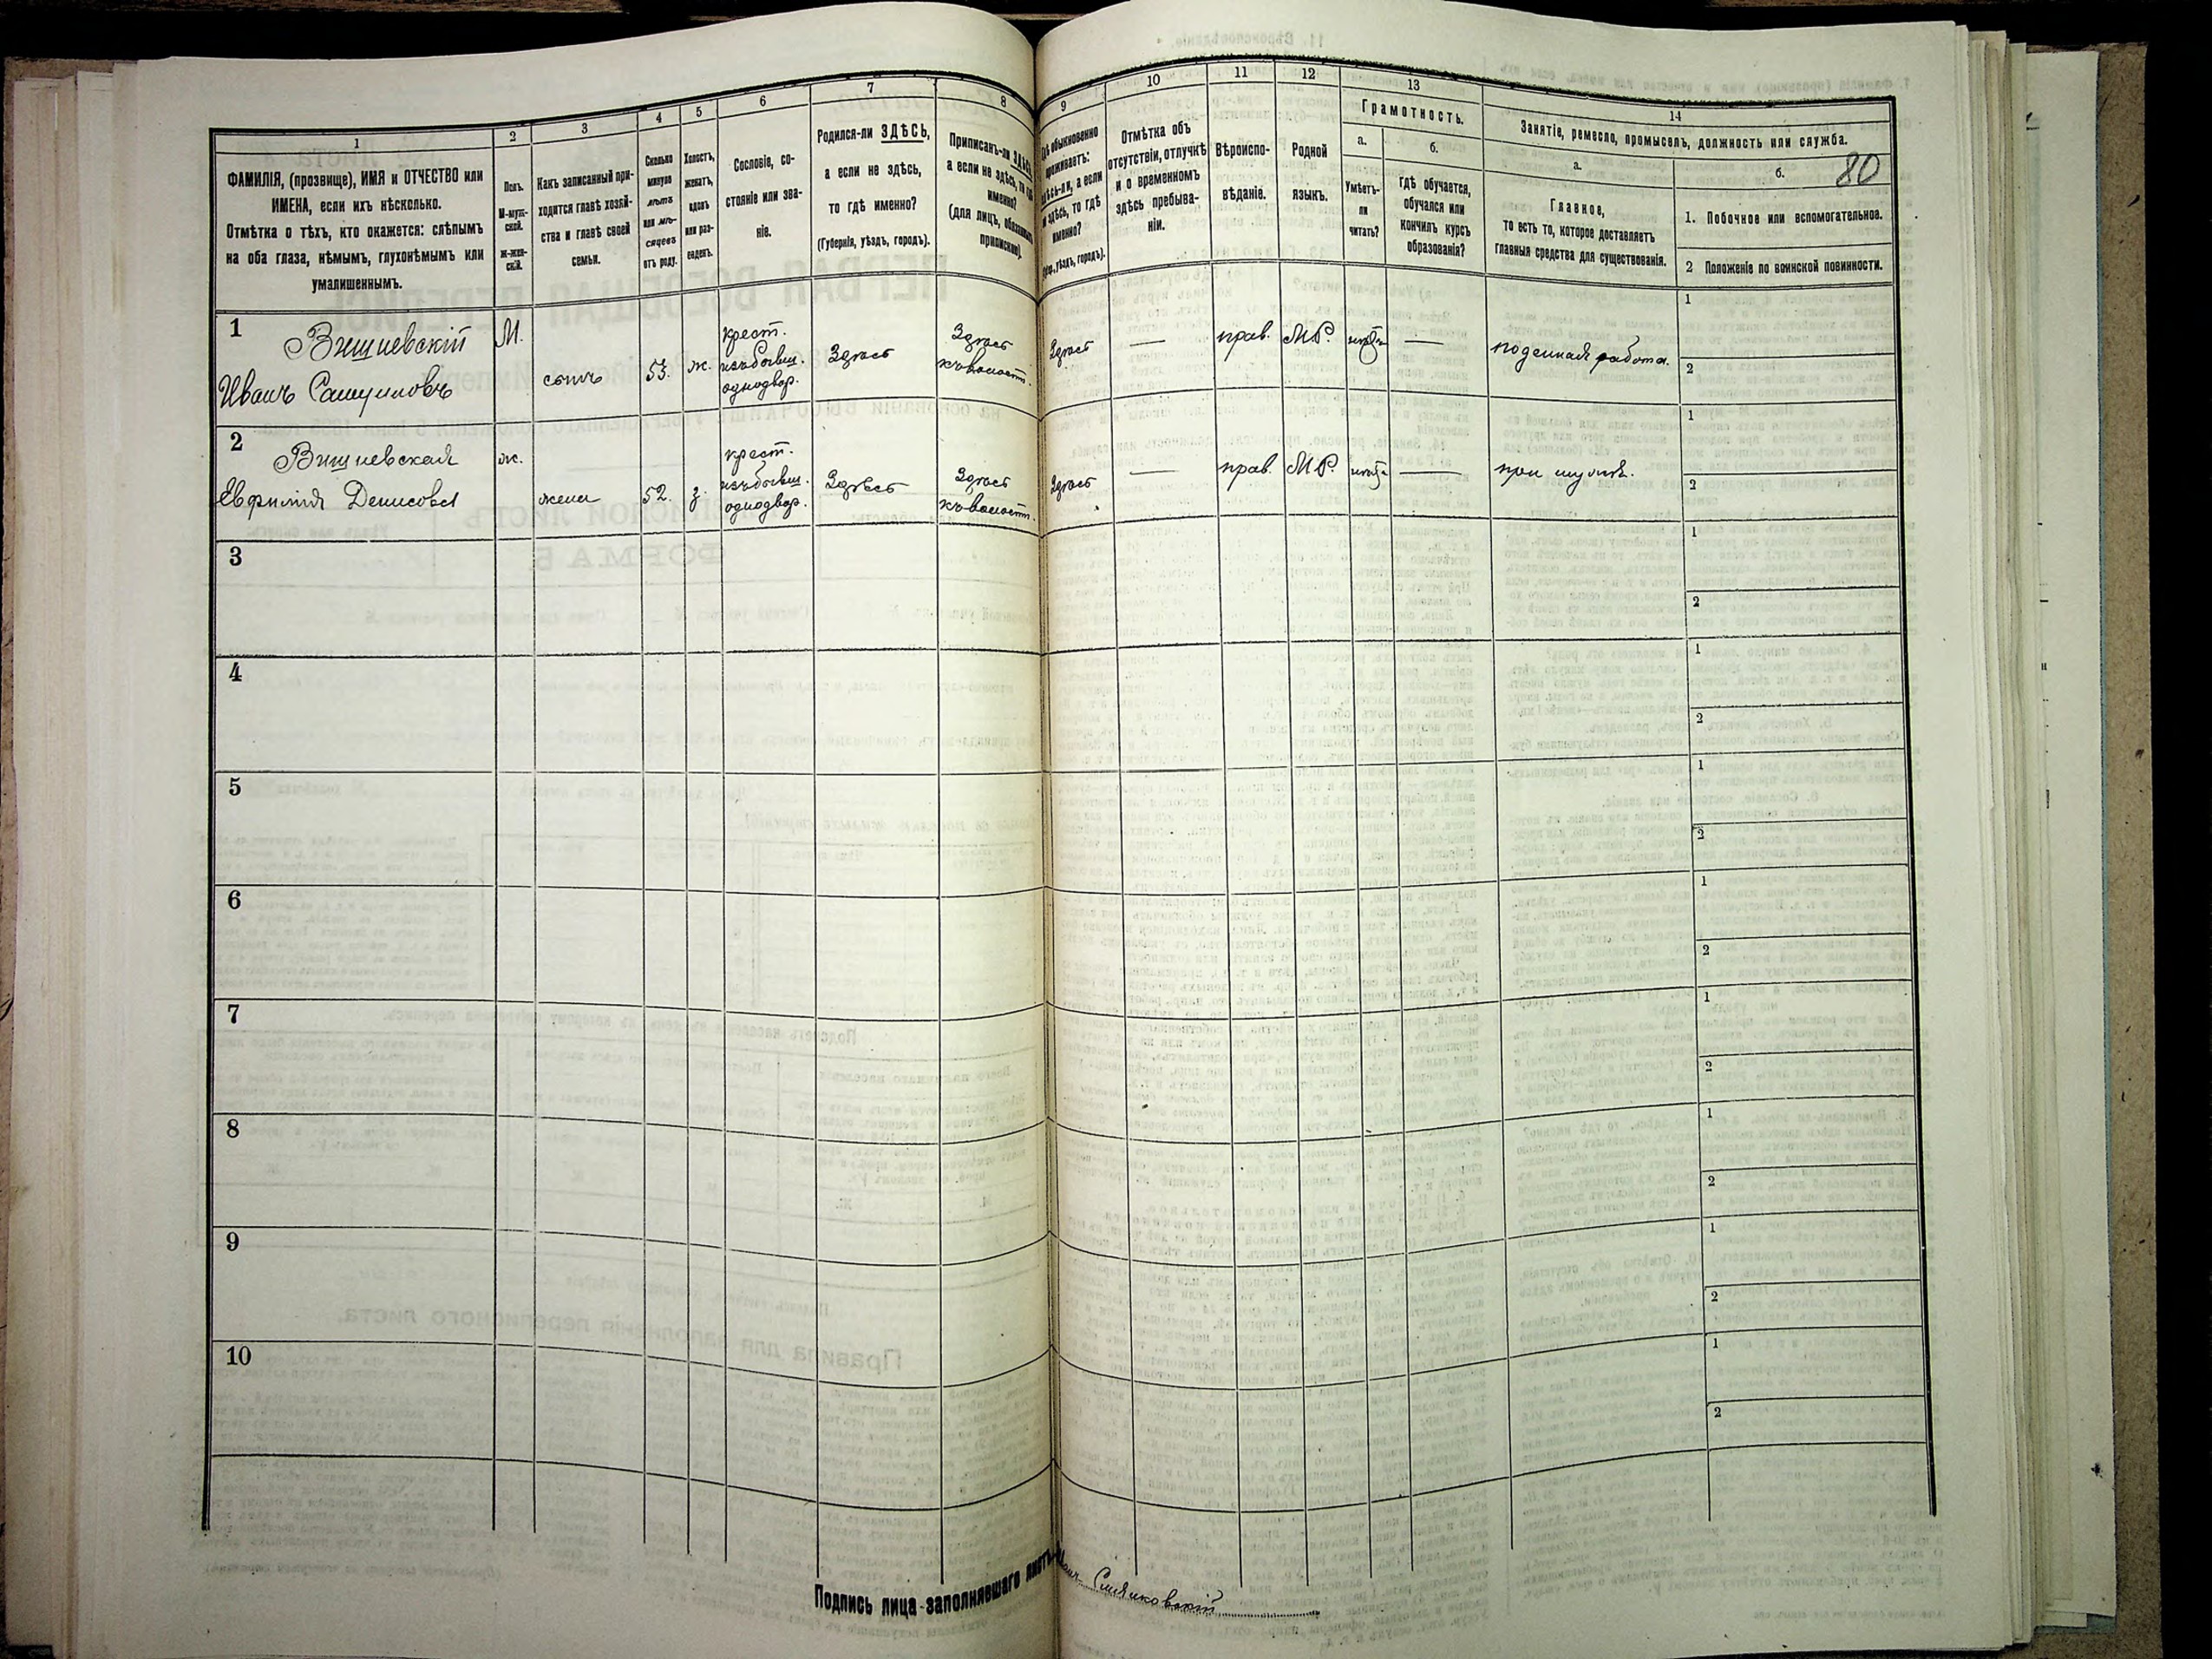 1
2
3
4
5
6
7
8
9
10
11
12
13
14
ФАМИЛІЯ, (прозвище), ИМЯ и ОТЧЕСТВО или
ИМЕНА, если ихъ нѣсколько.
Отмѣтка о тѣхъ, кто окажется: слѣпымъ
на оба глаза, нѣмымъ, глухонѣмымъ или
умалишеннымъ.
Полъ.
М-муж-
ской.
Ж-жен-
скій.
Какъ записанный при-
ходится главѣ хозяй-
ства и главѣ своей
семьи.
Сколько
минуло
лѣтъ
или мѣ-
сяцевъ
отъ роду.
Холостъ,
женатъ,
вдовъ
или раз-
веденъ.
Сословіе, со-
стояніе или зва-
ніе.
Родился-ли ЗДѢСЬ,
а если не здѣсь,
то гдѣ именно?
(Губернія, уѣздъ, городъ).
Приписанъ-ли ЗДѢСЬ,
а если не здѣсь, то гдѣ
именно?
(для лицъ, обязанныхъ
припискою).
обыкновенно
проживаетъ:
а если
здѣсь, то гдѣ
именно?
уѣздъ, городъ).
Отмѣтка объ
отсутствіи, отлучкѣ
и о временномъ
здѣсь пребыва-
ніи.
Вѣроиспо-
вѣданіе.
Родной
языкъ.
Грамотность.
а.
б.
Умѣетъ-
ли
читать?
гдѣ обучается,
обучался или
кончилъ курсъ
образованія?
Занятіе, ремесло, промыселъ, должность или служба.
а.
б.
80
Главное,
то есть то, которое доставляетъ
главныя средства для существованія.
1. Побочное или вспомогательное.
2 Положеніе по воинской повинности.
1
Вишневскій
Иванъ
М.
53.
ж.
крест.
изъ бывш.
однодвор.
Здѣсь
Здѣсь
къ волост.
Здѣсь
—
прав.
МР.
—
поденная работа.
1
2
2
Вишневская
Евфимія Денисова
ж.
жена
52.
з.
крест.
изъ бывш.
однодвор.
Здѣсь
Здѣсь
къ волост.
Здѣсь
—
прав.
МР.
—
при мужѣ.
1
2
3
1
2
4
1
2
5
1
2
6
1
2
7
1
2
8
1
2
9
1
2
10
1
2
Подпись лица заполнявшаго листъ